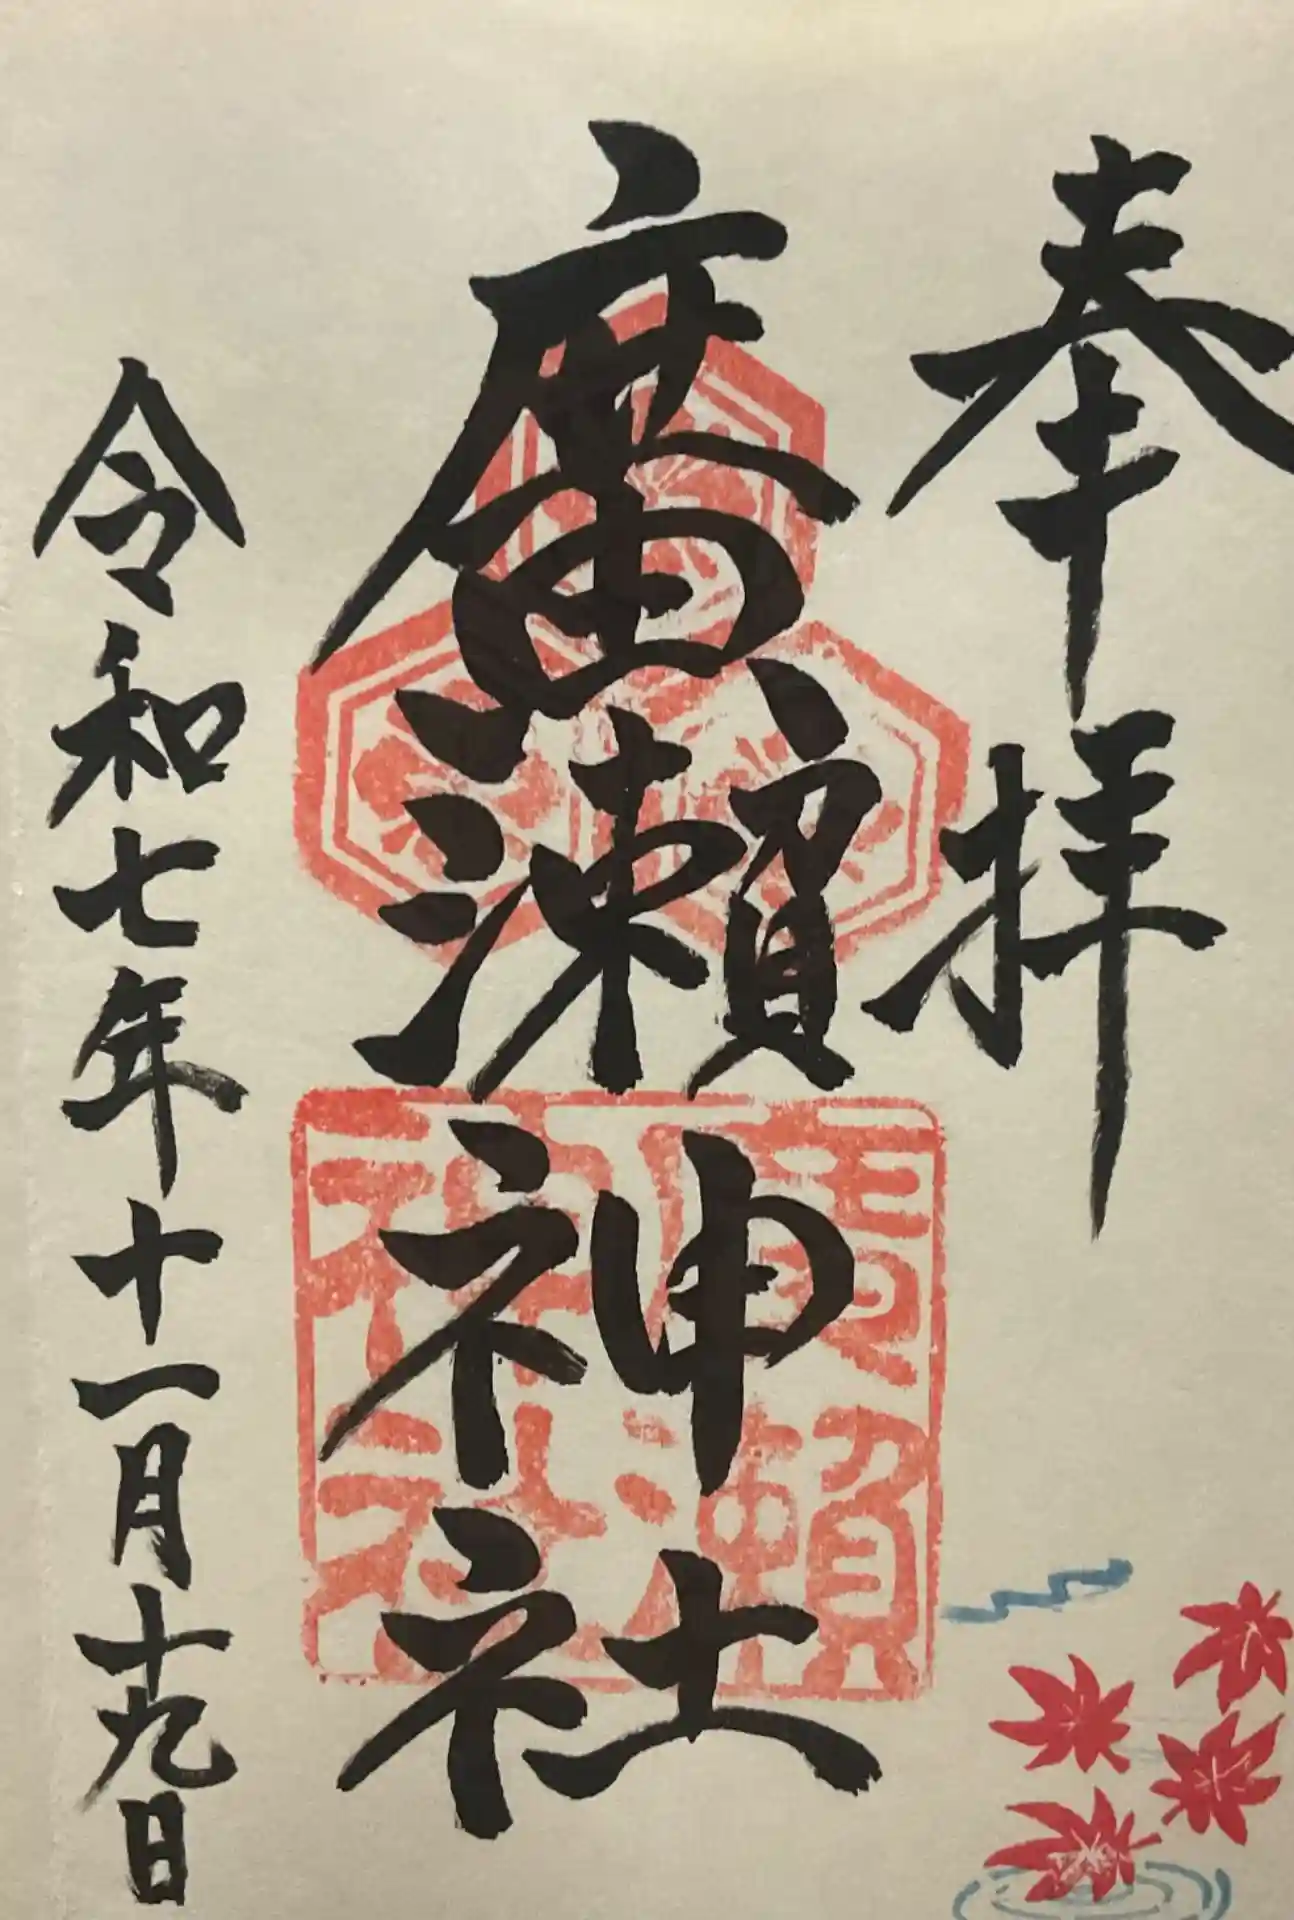 奉拝
廣瀬神社
廣瀬神社
令和七年十一月十九日